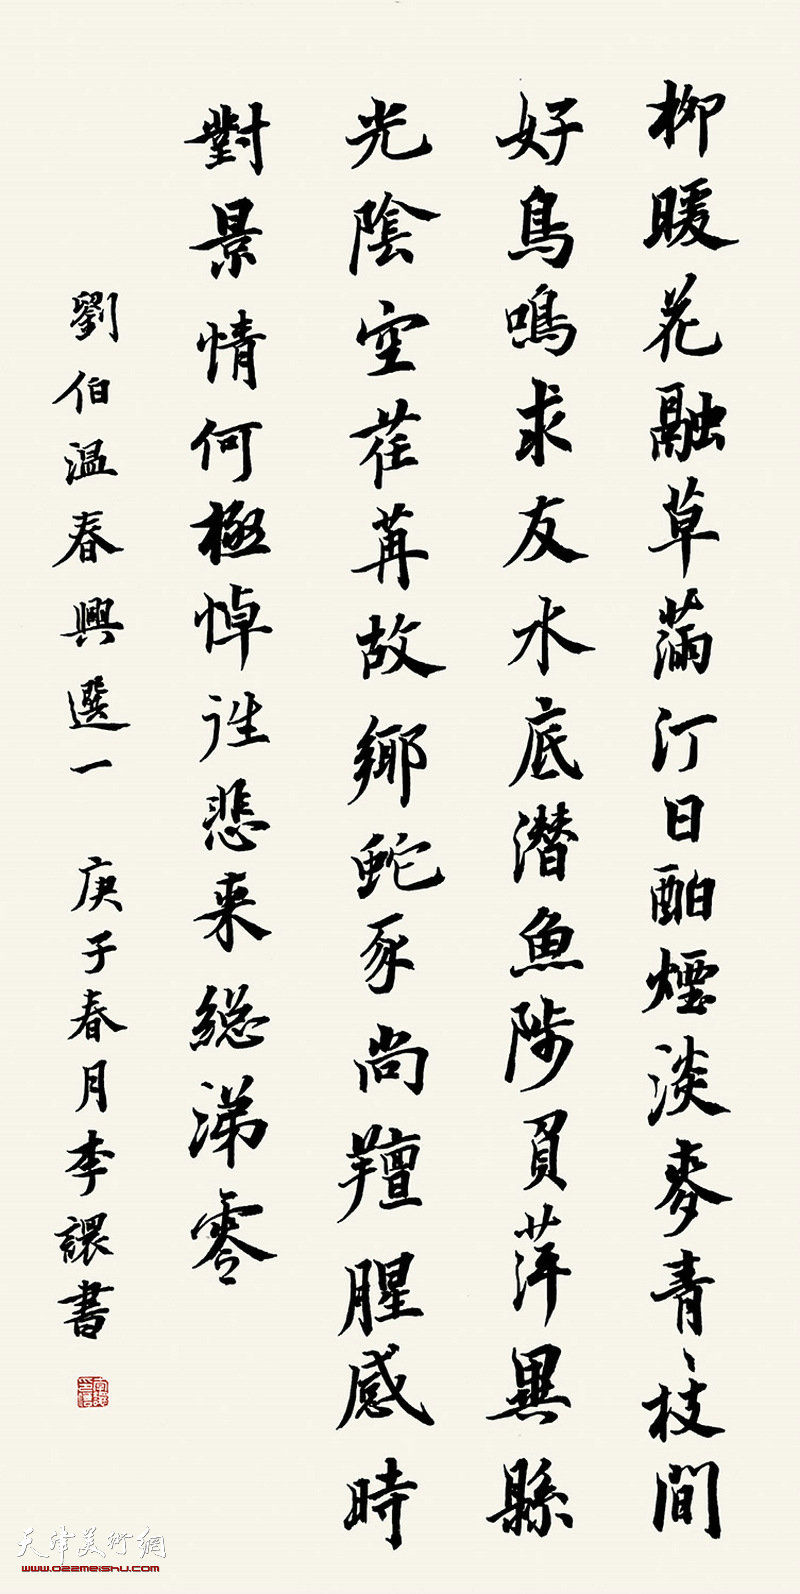 柳暖花融草滿汀日酣煙淡麥青々枝間
好鳥鳴求友水底潛魚陟負萍異縣
光陰空荏苒故鄉蛇豕尚羶腥感時
對景情何極悼往悲来總涕零
劉伯温春興選一 庚子春月李譞書
天津美術網
www.022meishu.com